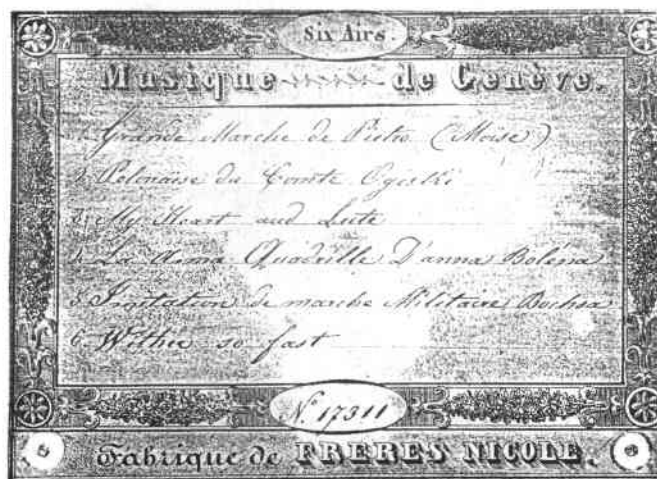 Six Airs.
Musique de Genève.
1. Grande Marche de Pietro (Moise)
2. Polonaise du Comte Ogeski
3. My Heart and Lute
4. La Roma Quadrille D'anna Boléna
5. Invitation de marche Militaire Bochsa
6. Wither so fast
N. 17311
Fabrique de FRERES NICOLE.